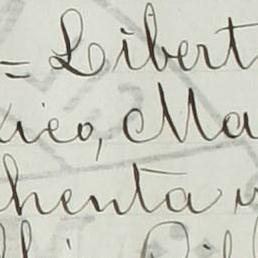 = Libert
xico, Ma
henta